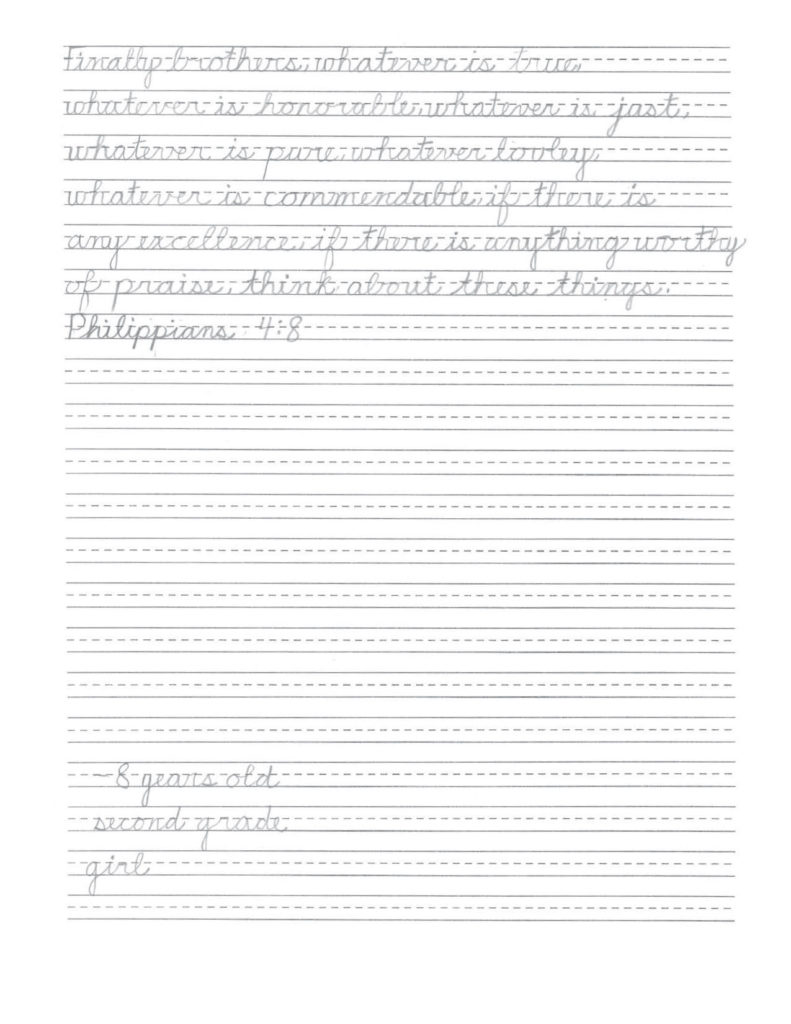 finally brothers, whatever is true,
whatever is honorable, whatever is just,
whatever is pure, whatever lovley,
whatever is commendable, if there is
any excellence, if there is anything worthy
of praise, think about these things.
Philippians 4:8
- 8 years old
second grade
girl